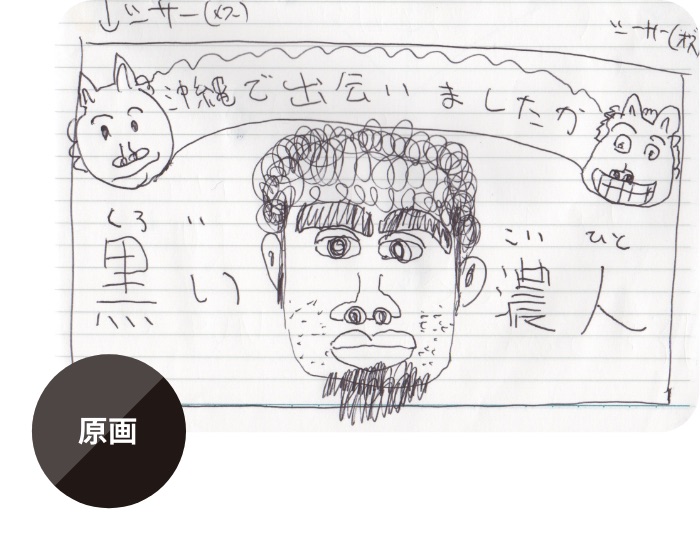 シーサー(メス)
シーサー(オス
沖縄で出会いましたか
くろ い
黒 い
こい ひと
濃 人
原画